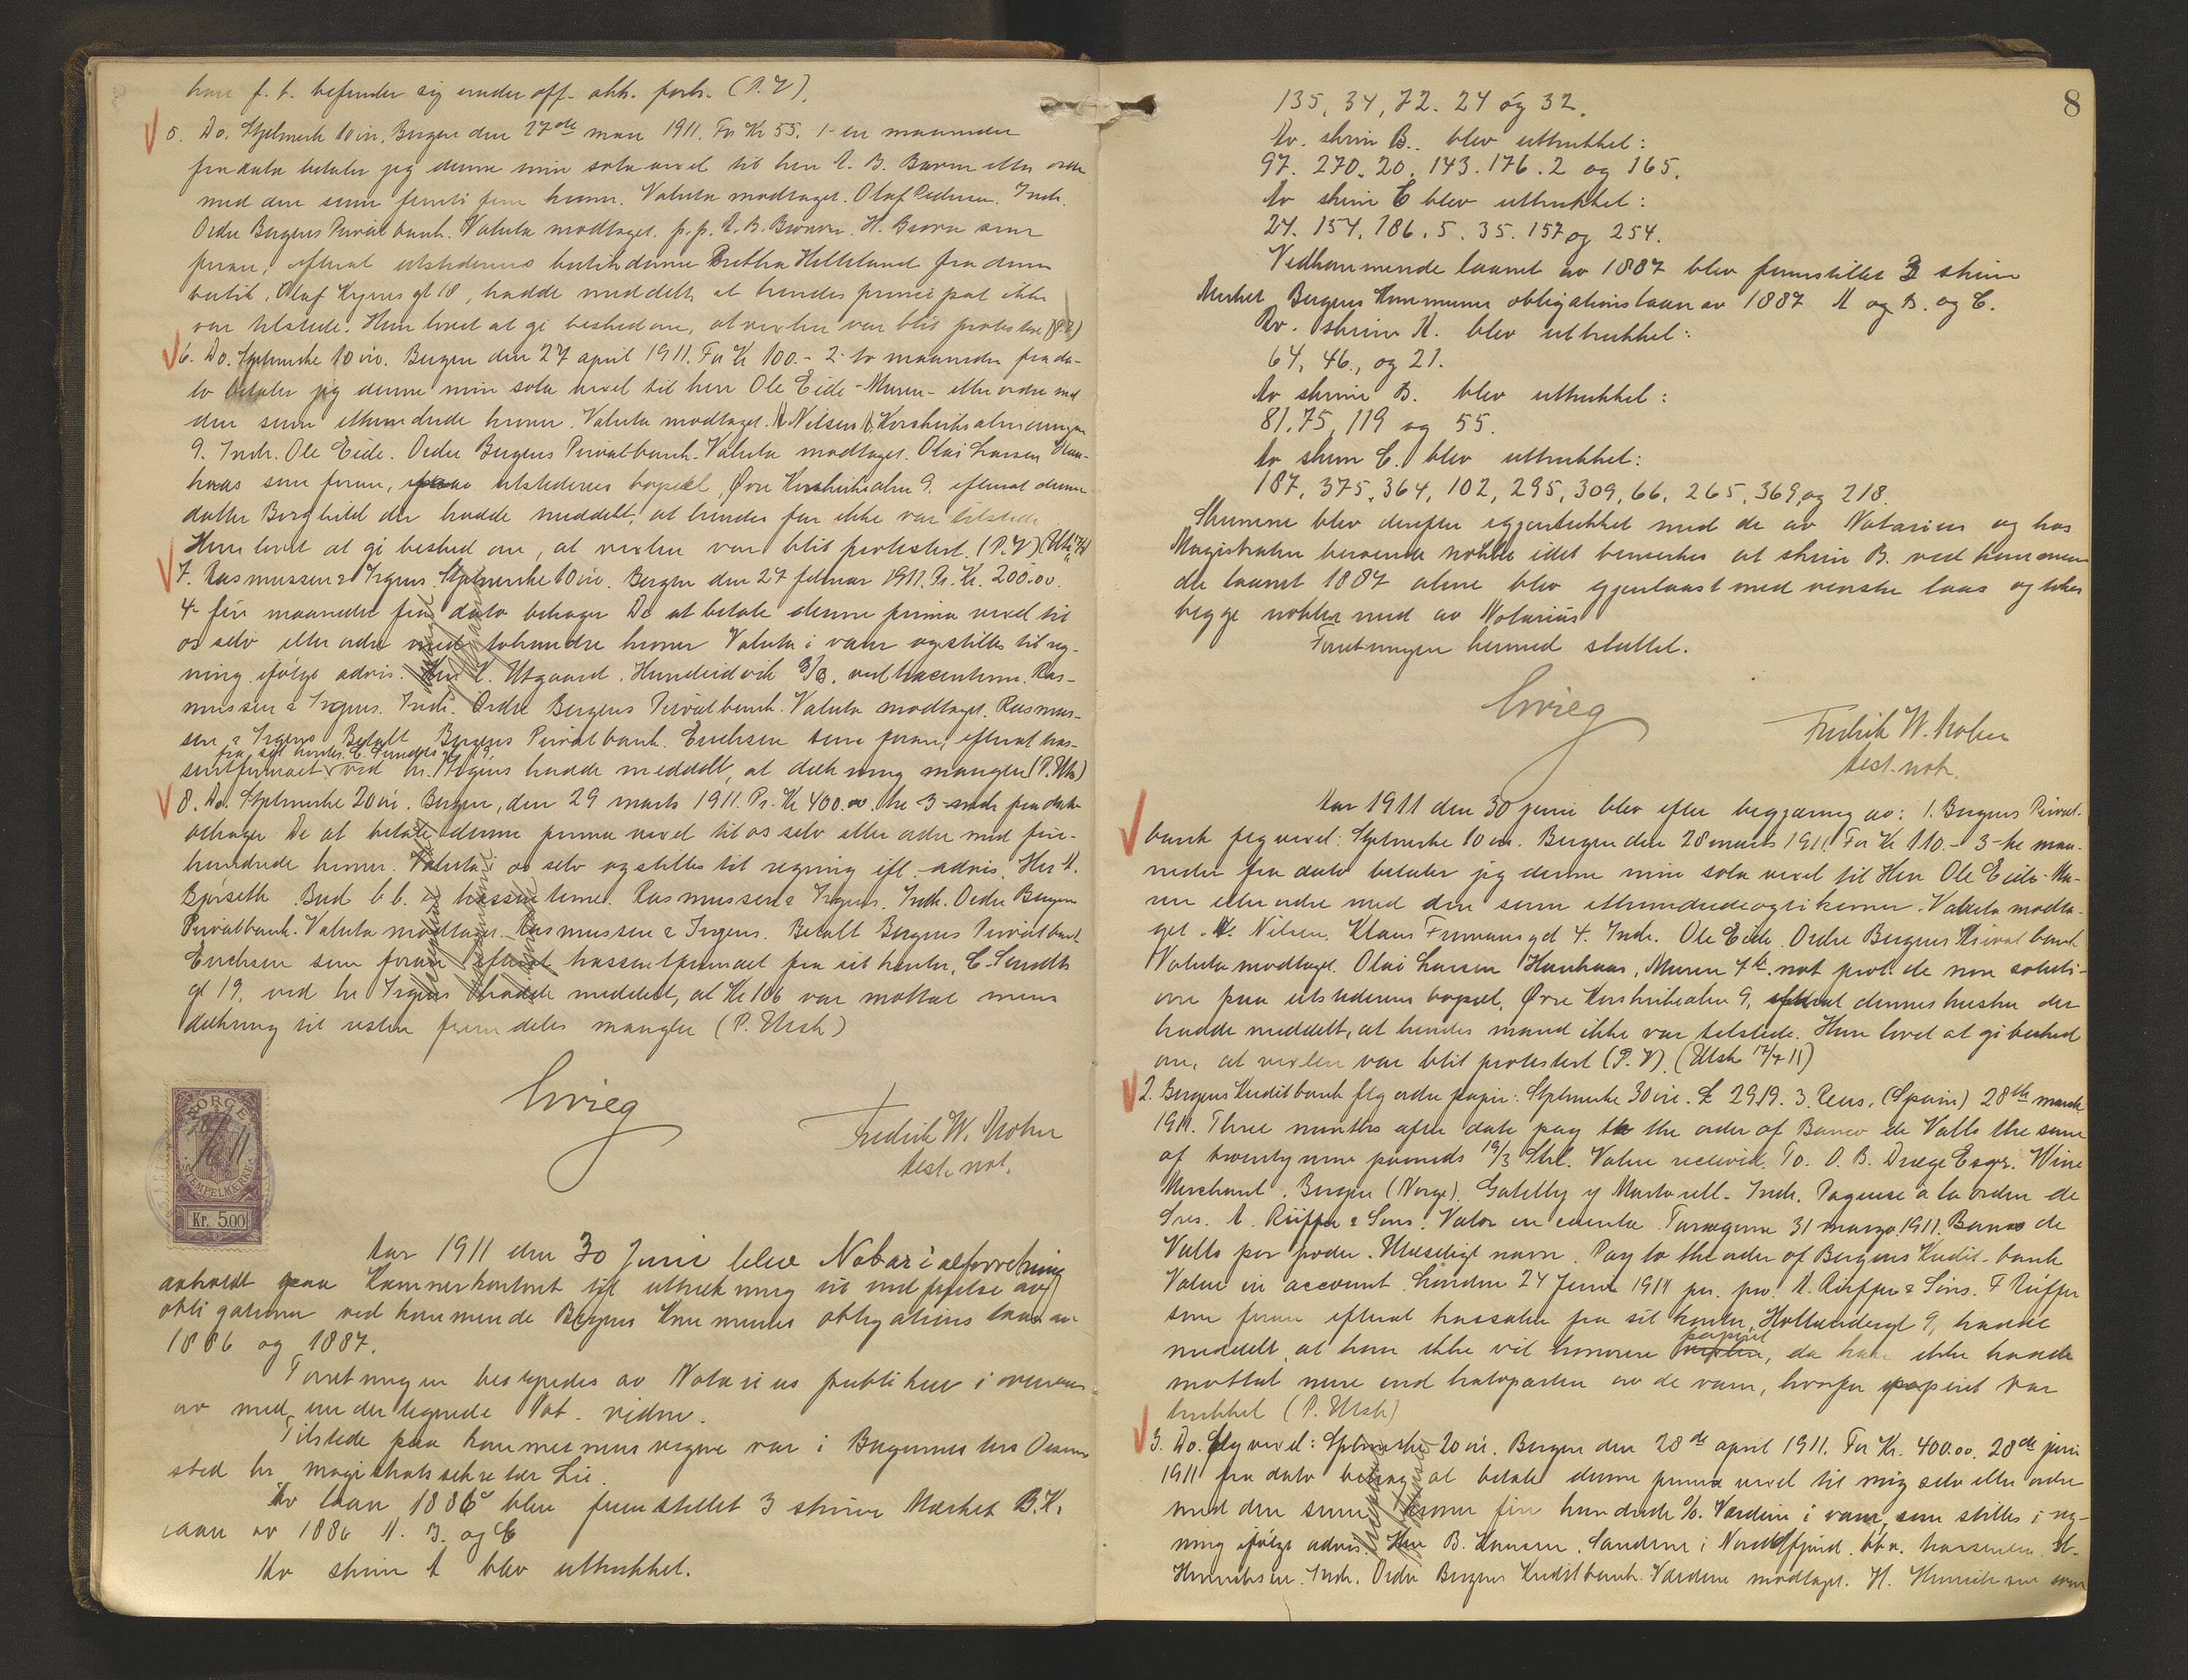 han f. t. befinder sig under off. akk. forh. (P.V).
5. Do. Stplmerk 10 øre, Bergen den 27de mars 1911. For Kr 55. 1- en maaneder
fra dato betaler jeg denne min sola vexel til herr A. B. Bævre eller ordre
med den sum femti fem kroner. Valuta modtaget. Olaf Pedersen. Indr.
Ordre Bergens Privatbank. Valuta modtaget. p.p. A. B. Bævre. H. Bævre som
foran, efterat utstederens butikdame Bretha Helleland fra denne
butik, Olaf Kyrres gt 18, hadde meddelt, at hendes principal ikke
var tilstede. Hun lovet at gi besked om, at vexlen var blit protestert (P.V.)
6. Do. Stplmerke 10 øre. Bergen den 27 april 1911. For Kr 100.- 2- to maaneder fra da-
to betaler jeg denne min sola vexel til herr Ole Eide - Muren - eller ordre med
den sum ethundrede kroner. Valuta modtaget. A Nilsen Ø. Korskirkealmenningen
9. Indr. Ole Eide. Ordre Bergens Privatbank. Valuta modtaget. Olai Larsen Hau-
haas som foran, paa utstederens bopæl, Øvre Korskirkealm 9. efterat dennes
datter Borghild der hadde meddelt, at hendes far ikke var tilstede
Hun lovet at gi besked om, at vexlen var blit protestert. (P.V)
7. Rasmussen & Irgens. Stplmerke 10 øre. Bergen den 27 februar 1911. Pr. Kr. 200.00.
4- fire maaneder fra dato behager De at betale denne prima vexel til
os selv eller ordre med tohundre kroner Valuta i varer og stilles til reg-
ning ifølge advis. Herr L. Utgaard. Hundeidvik 3/3. vedtacentum. Ras-
mussen & Irgens. Indr. Ordre Bergens Privatbank. Valuta modtaget. Rasmus-
sen & Irgens Betalt Bergens Privatbank. Erichsen som foran, efterat tras-
fra sit kontor, C. Sundts gt 19,
sentfirmaet ved hr. Irgens hadde meddelt, at dækning mangler (P. Utsk)
8. Do. Stplmerke 20 øre. Bergen, den 29 marts 1911. Pr. Kr 400.00. tre 3- mdr fra dato
behager De at betale denne prima vexel til os selv eller ordre med fire-
hundrede kroner. Valuta i os selv og stilles til regning ifl. advis. Herr A.
Bjørseth. Bud b b. hossenteme. Rasmussen & Irgens. Indr. Ordre Bergens
Privatbank. Valuta modtaget. Rasmussen & Irgens. Betalt Bergens Privatbank
Erichsen som foran efterat trassentfirmaet fra sit kontor, C. Sundts
gt 19, ved hr Irgens hadde meddelt, at Kr 106 var mottat mens
dækning til resten fremdeles mangler (P. Utsk)
Grieg
Fredrik W. Mohr
test. not.
NORGE
STEMPELMÆRKE
Kr. 5.00
Aar 1911 den 30 Juni blev Notarialforretning
avholdt paa Kæmnerkontoret til uttrækning til indfrielse av
obligationer vedkommende Bergens Kommunes obligations laan av
1886 og 1887.
Forretningen besørgedes av Notarius publikus i overvær
av med undertegnede Not. vidne.
Tilstede paa kommunens vegne var i Borgermesters
sted hr magistratssekretær Lie.
Av laan 1886 blev fremstillet 3 skrin Mærket B.K.
laan av 1886 A. B. og C
Av skrin A blev uttrukket.
8
135, 34, 72. 24 og 32.
Av. skrin B. blev uttrukket:
97. 270. 20. 143. 176. 2 og 165.
Av skrin C blev uttrukket:
24. 154. 186. 5. 35. 157 og 254.
Vedkommende laanet av 1887 blev fremstillet 3 skrin
Merket Bergens Kommunes obligationslaan av 1887 A og B. og C.
Av. skrin A. blev uttrukket:
64, 46, og 21.
Av skrin B. blev uttrukket:
81, 75, 119 og 55.
Av skrin C. blev uttrukket:
187, 375, 364, 102, 295, 309, 66, 265, 369, og 218.
Skrinene blev derefter igjenlukket med de av Notarius og hos
Magistraten beroende nøkler idet bemerkes at skrin B. vedkommen
de laanet 1887 alene blev gjenlaast med venstre laas og
begge nøkler med av Notarius
Forretningen hermed sluttet.
Grieg
Fredrik W. Mohr
test. not.
Aar 1911 den 30 juni blev efter begjæring av: 1. Bergens Privat-
bank flg vexel: Stplmerke 10 øre. Bergen den 28 marts 1911. For Kr 110.- 3- tre maa-
neder fra dato betaler jeg denne min sola vexel til Herr Ole Eide - Mu-
ren eller ordre med den sum ethundredeogti kroner. Valuta modta-
get. A. Nilsen. Klaus Fremansgd 4. Indr. Ole Eide. Ordre Bergens Privatbank
Valuta modtaget. Olai Larsen Hauhaas, Muren 4de. not prot. de non soluti-
one paa utstederens bopæl, Øvre Korskirkealm 9, efterat dennes hustru der
hadde meddelt, at hendes mand ikke var tilstede. Hun lovet at gi besked
om, at vexlen var blit protestert (P.V). (Utsk 12/7 11)
2. Bergens Kreditbank flg ordre papir: Stplmerke 30 øre. £ 29.19. 3. Reus, (Spain) 28th march
1911. Three months after date pay to the order of Banco de Valls the sum
of twenty nine pounds 19/3 Strl. Value received. To. O. B. Drege Esqr. Wine
Merchant. Bergen (Norge). Gatelly y Martorell. Indr. Paguese a la orden de
Sres. A. Rüffer & Sons. Valor en cuenta. Tarragona 31 marzo 1911. Banco de
Valls por poder. Ulæseligt navn. Pay to the order of Bergens Kredit-bank
Value in account. London 24 June 1911 per. pro. A. Rüffer & Sons. F Rüffer
som foran efterat trassaten fra sit kontor, Hollændergt 9, hadde
papiret
meddelt, at han ikke vil honorere vexlen, da han ikke hadde
mottat mere end halvparten av de varer, hvorfor papiret var
trukket (P. Utsk)
3. Do. flg vexel: Splmerke 20 øre. Bergen den 28de april 1911. For Kr. 400.00. 28de juni
1911 fra dato behag at betale denne prima vexel til mig selv eller ordre
med den sum kroner fire hundrede 0/0. Værdien i varer, som stilles i reg-
ning ifølge advis. Herr B. Hansen. Sandene i Nordfjord. trassenten
Henrichsen. Indr. Ordre Bergens Kreditbank. Værdien modtaget. H. Henrichsen som